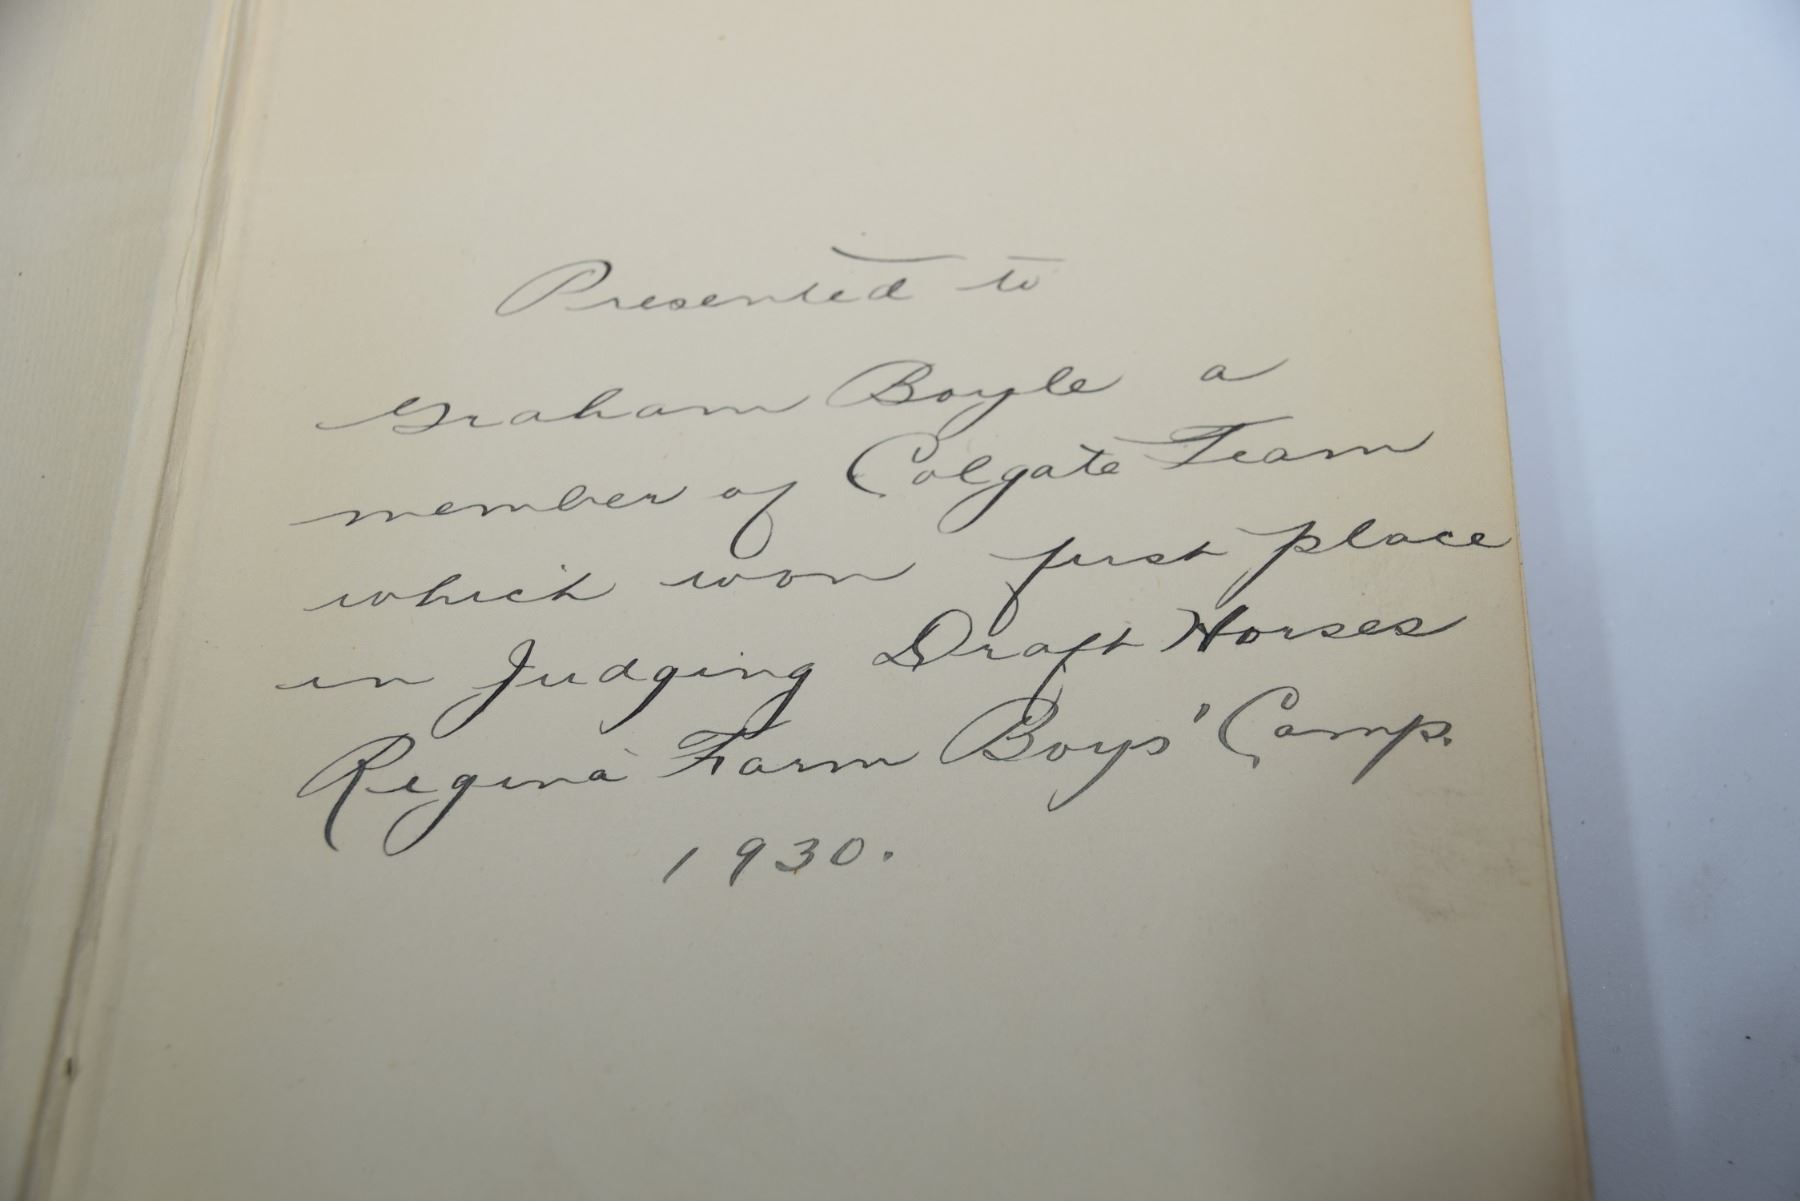 Presented to
Graham Boyle a
member of Colgate Team
which won first place
in Judging Draft Horses
Regina Farm Boys' Camp.
1930.